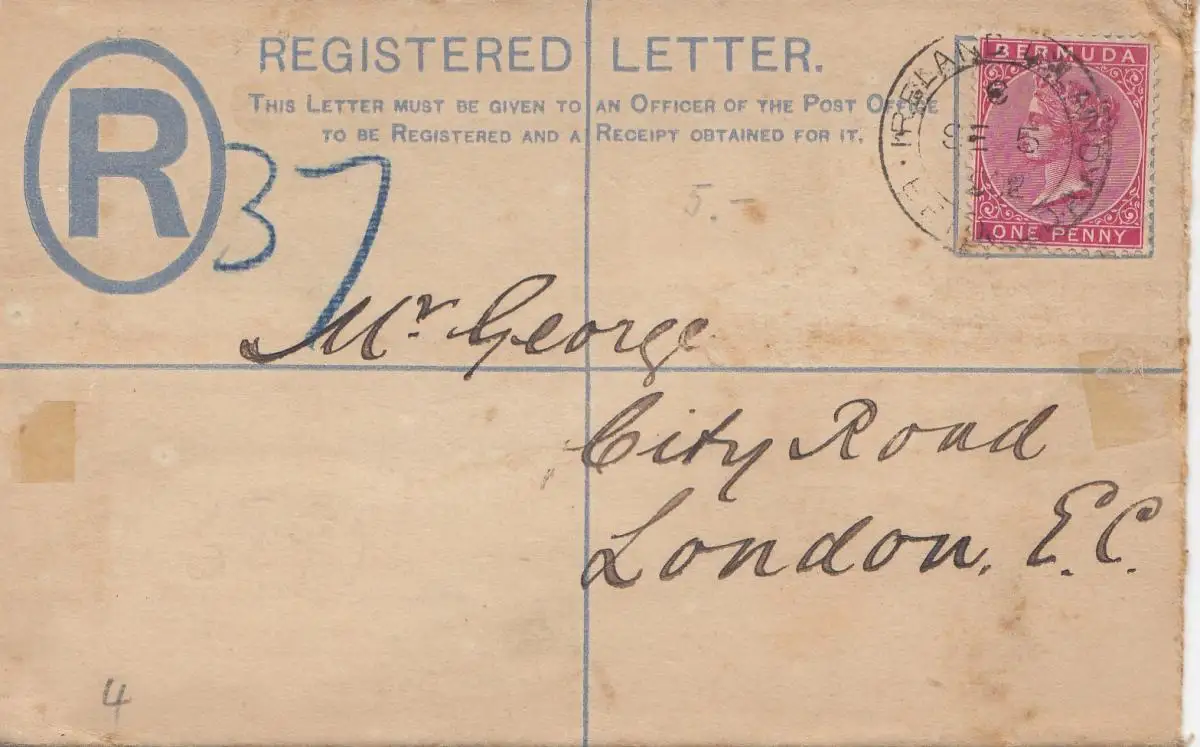 REGISTERED LETTER.
THIS LETTER MUST BE GIVEN TO AN OFFICER OF THE POST OFFICE
TO BE REGISTERED AND A RECEIPT OBTAINED FOR IT.
R
37
5.-
BERMUDA
ONE PENNY
IRELAND ISLAND
SE 5
Mr George
City Road
London. E.C.
4